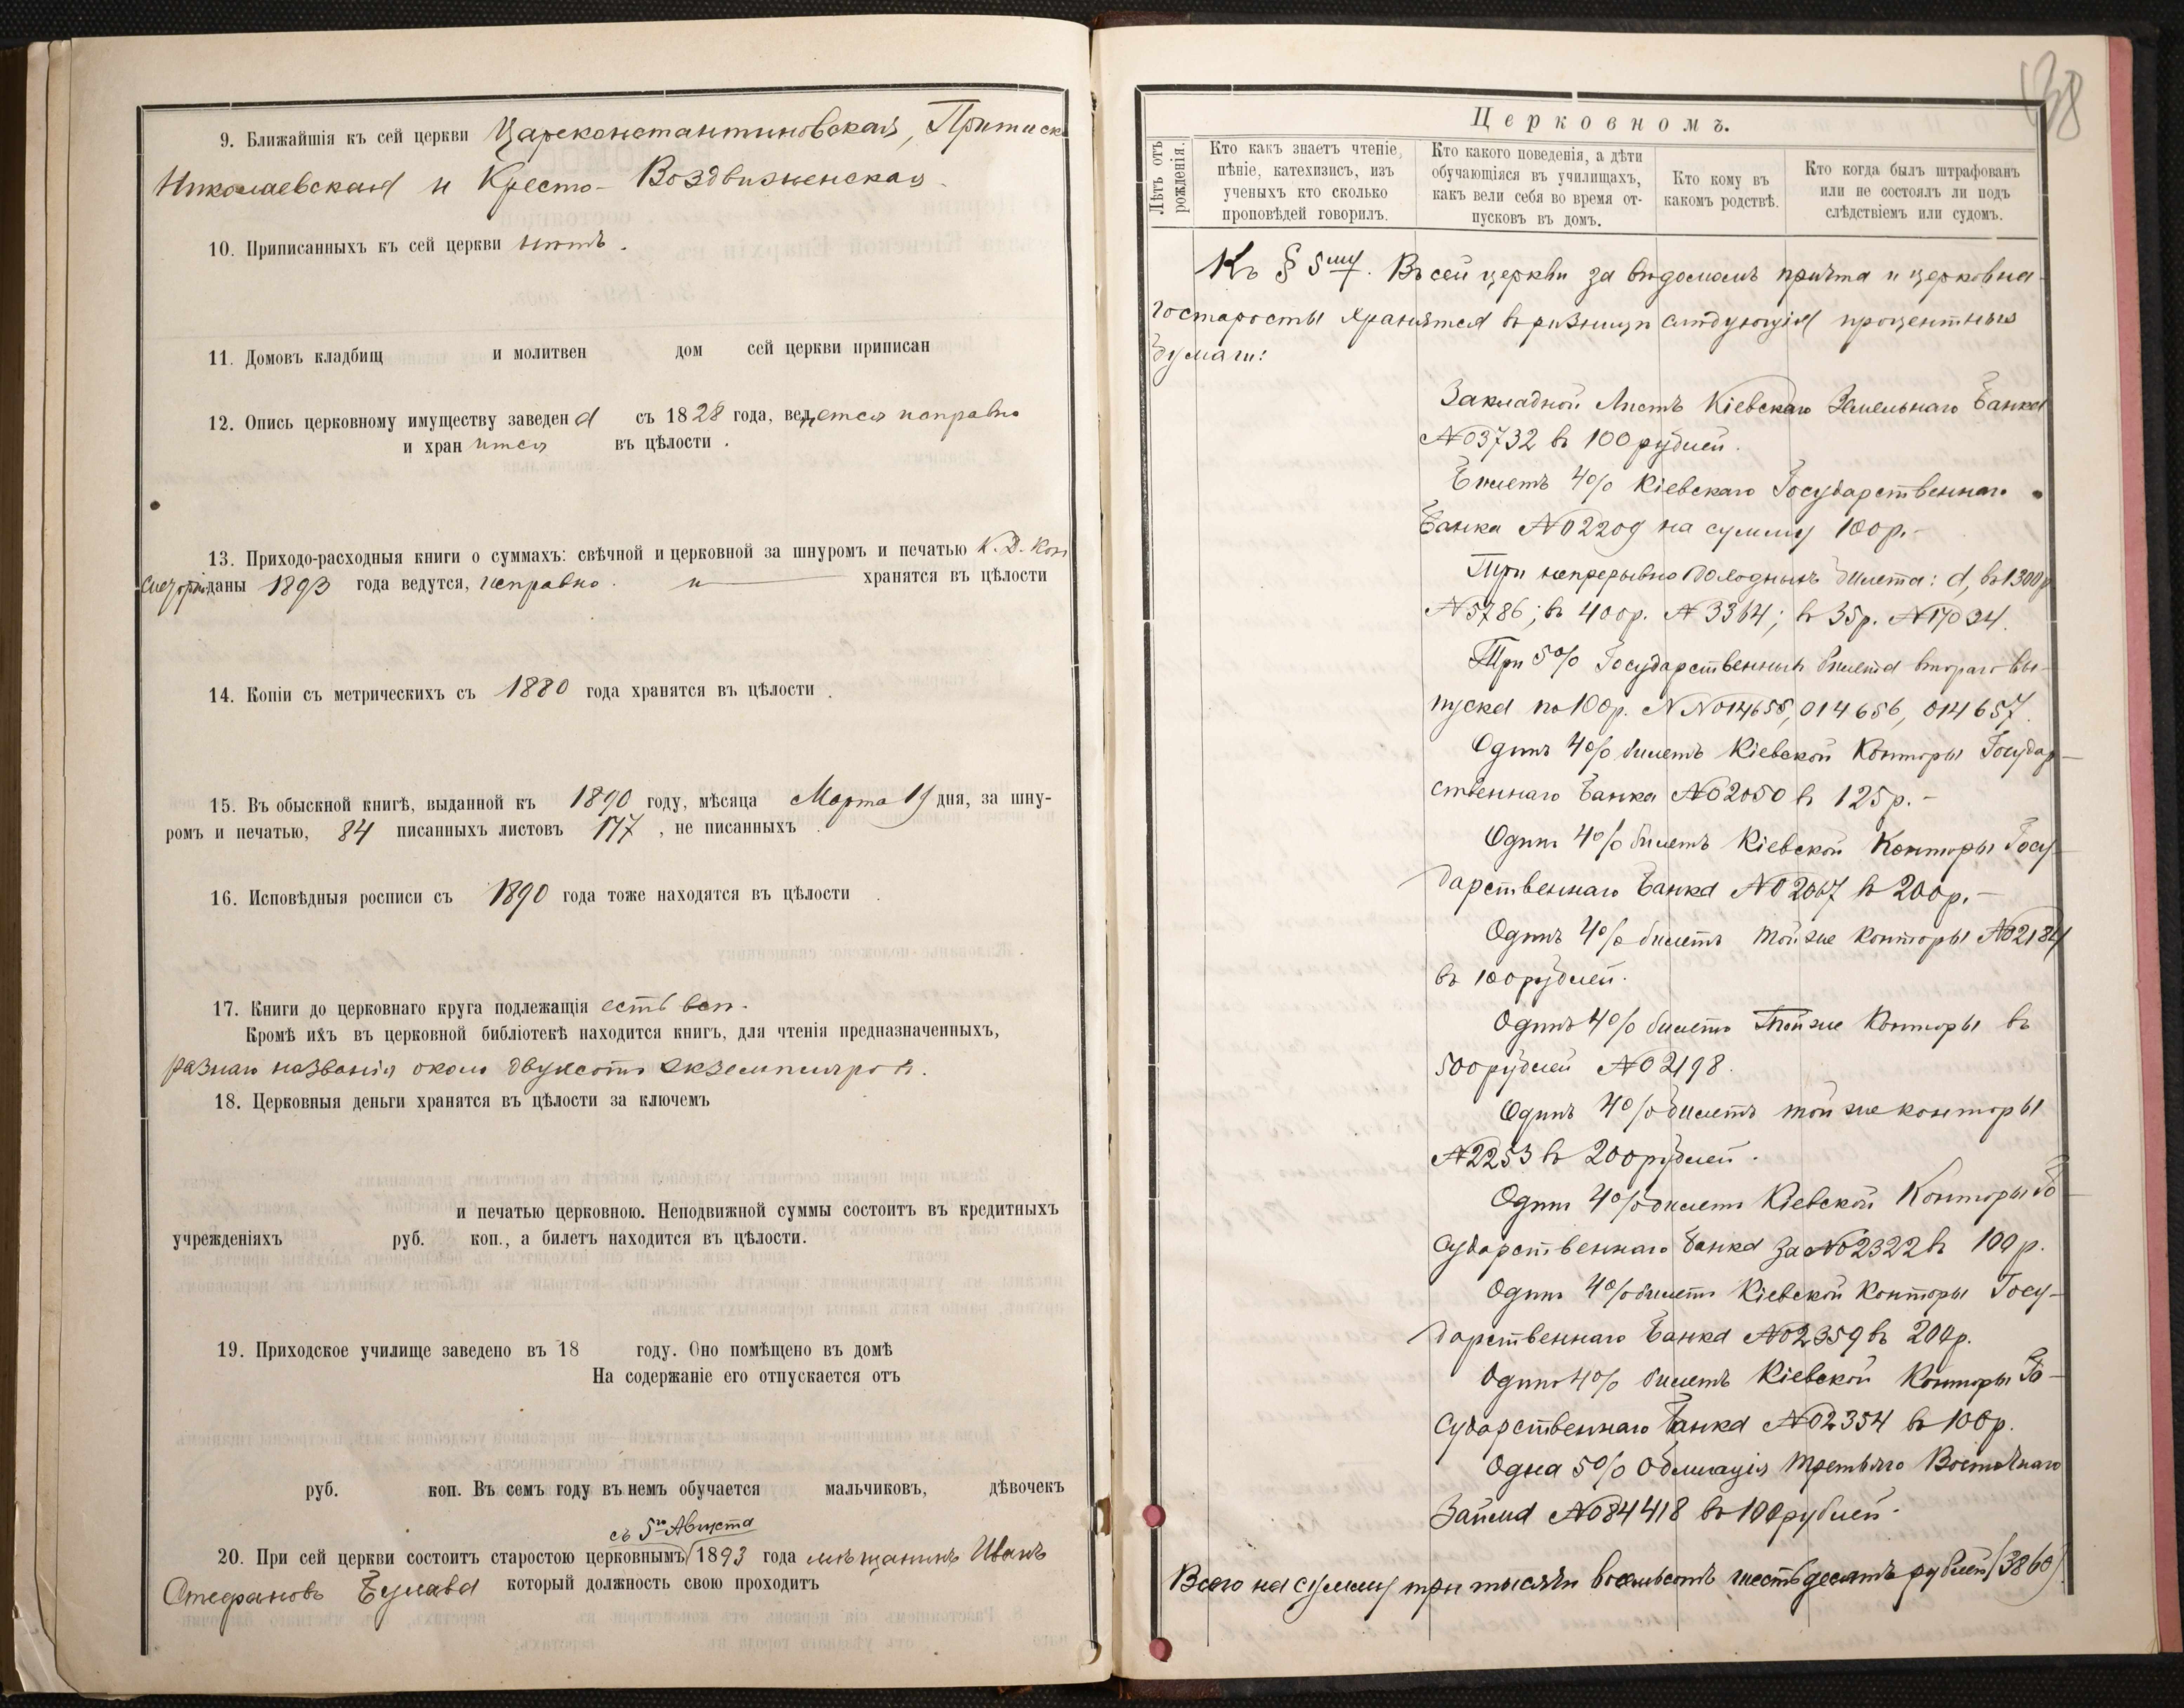 9. Ближайшія къ сей церкви Цареконстантиновская, Притиско
Николаевская и Кресто-Воздвиженская.
10. Приписанныхъ къ сей церкви нѣтъ.
11. Домовъ кладбищ и молитвен дом сей церкви приписан
12. Опись церковному имуществу заведена съ 1828 года, ведется исправно
и хранится въ цѣлости.
13. Приходо-расходныя книги о суммахъ: свѣчной и церковной за шнуромъ и печатью К. Д. Кон
систоріи даны 1893 года ведутся, исправно. и хранятся въ цѣлости
14. Копіи съ метрическихъ съ 1880 года хранятся въ цѣлости.
15. Въ обыскной книгѣ, выданной къ 1890 году, мѣсяца Марта 19 дня, за шну-
ромъ и печатью, 84 писанныхъ листовъ 177, не писанныхъ.
16. Исповѣдныя росписи съ 1890 года тоже находятся въ цѣлости.
17. Книги до церковнаго круга подлежащія есть всѣ.
Кромѣ ихъ въ церковной библіотекѣ находится книгъ, для чтенія предназначенныхъ,
разнаго названія около двухсотъ экземпляровъ.
18. Церковныя деньги хранятся въ цѣлости за ключемъ
и печатью церковною. Неподвижной суммы состоитъ въ кредитныхъ
учрежденіяхъ руб. коп., а билетъ находится въ цѣлости.
19. Приходское училище заведено въ 18 году. Оно помѣщено въ домѣ
На содержаніе его отпускается отъ
руб. коп. Въ семъ году въ немъ обучается мальчиковъ, дѣвочекъ
съ 5го Августа
20. При сей церкви состоитъ старостою церковнымъ 1893 года мѣщанинъ Иванъ
Стефановъ Булава который должность свою проходитъ
138
Церковномъ.
Лѣтъ отъ рожденія.
Кто какъ знаетъ чтеніе,
пѣніе, катехизисъ, изъ
ученыхъ кто сколько
проповѣдей говорилъ.
Кто какого поведенія, а дѣти
обучающіяся въ училищахъ,
какъ вели себя во время от-
пусковъ въ домъ.
Кто кому въ
какомъ родствѣ.
Кто когда былъ штрафованъ
или не состоялъ ли подъ
слѣдствіемъ или судомъ.
Къ § 5му. Въ сей церкви за вѣдомомъ причта и церковна-
го старосты хранятся въ ризницѣ слѣдующія процентныя
бумаги:
Закладной Листъ Кіевскаго Земельнаго Банка
№ 03732 въ 100 рублей.
Билетъ 4% Кіевскаго Государственнаго
Банка № 02209 на сумму 100 р.-
Три непрерывно доходныхъ билета: а, въ 1300 р
№ 5786; въ 400 р. № 3364; въ 35 р. № 17034.
Три 5% Государственныхъ билета втораго вы-
пуска по 100 р. №№ 014655, 014656, 014657.
Одинъ 4% билетъ Кіевской Конторы Государ-
ственнаго Банка № 02050 въ 125 р.-
Одинъ 4% билетъ Кіевской Конторы Госу-
дарственнаго Банка № 02067 въ 200 р.-
Одинъ 4% билетъ той же конторы № 02184
въ 100 рублей.
Одинъ 4% билетъ Той же Конторы въ
500 рублей № 02198.
Одинъ 4% билетъ той же конторы
№ 2253 въ 200 рублей.
Одинъ 4% билетъ Кіевской Конторы Го-
сударственнаго банка за № 02322 въ 100 р.
Одинъ 4% билетъ Кіевской Конторы Госу-
дарственнаго Банка № 02359 въ 200 р.
Одинъ 4% билетъ Кіевской Конторы Го-
сударственнаго Банка № 02354 въ 100 р.
Одна 5% Облигація третьяго Восточнаго
Займа № 084418 въ 100 рублей.
Всего на сумму три тысячи восемьсотъ шестьдесятъ рублей (3860)